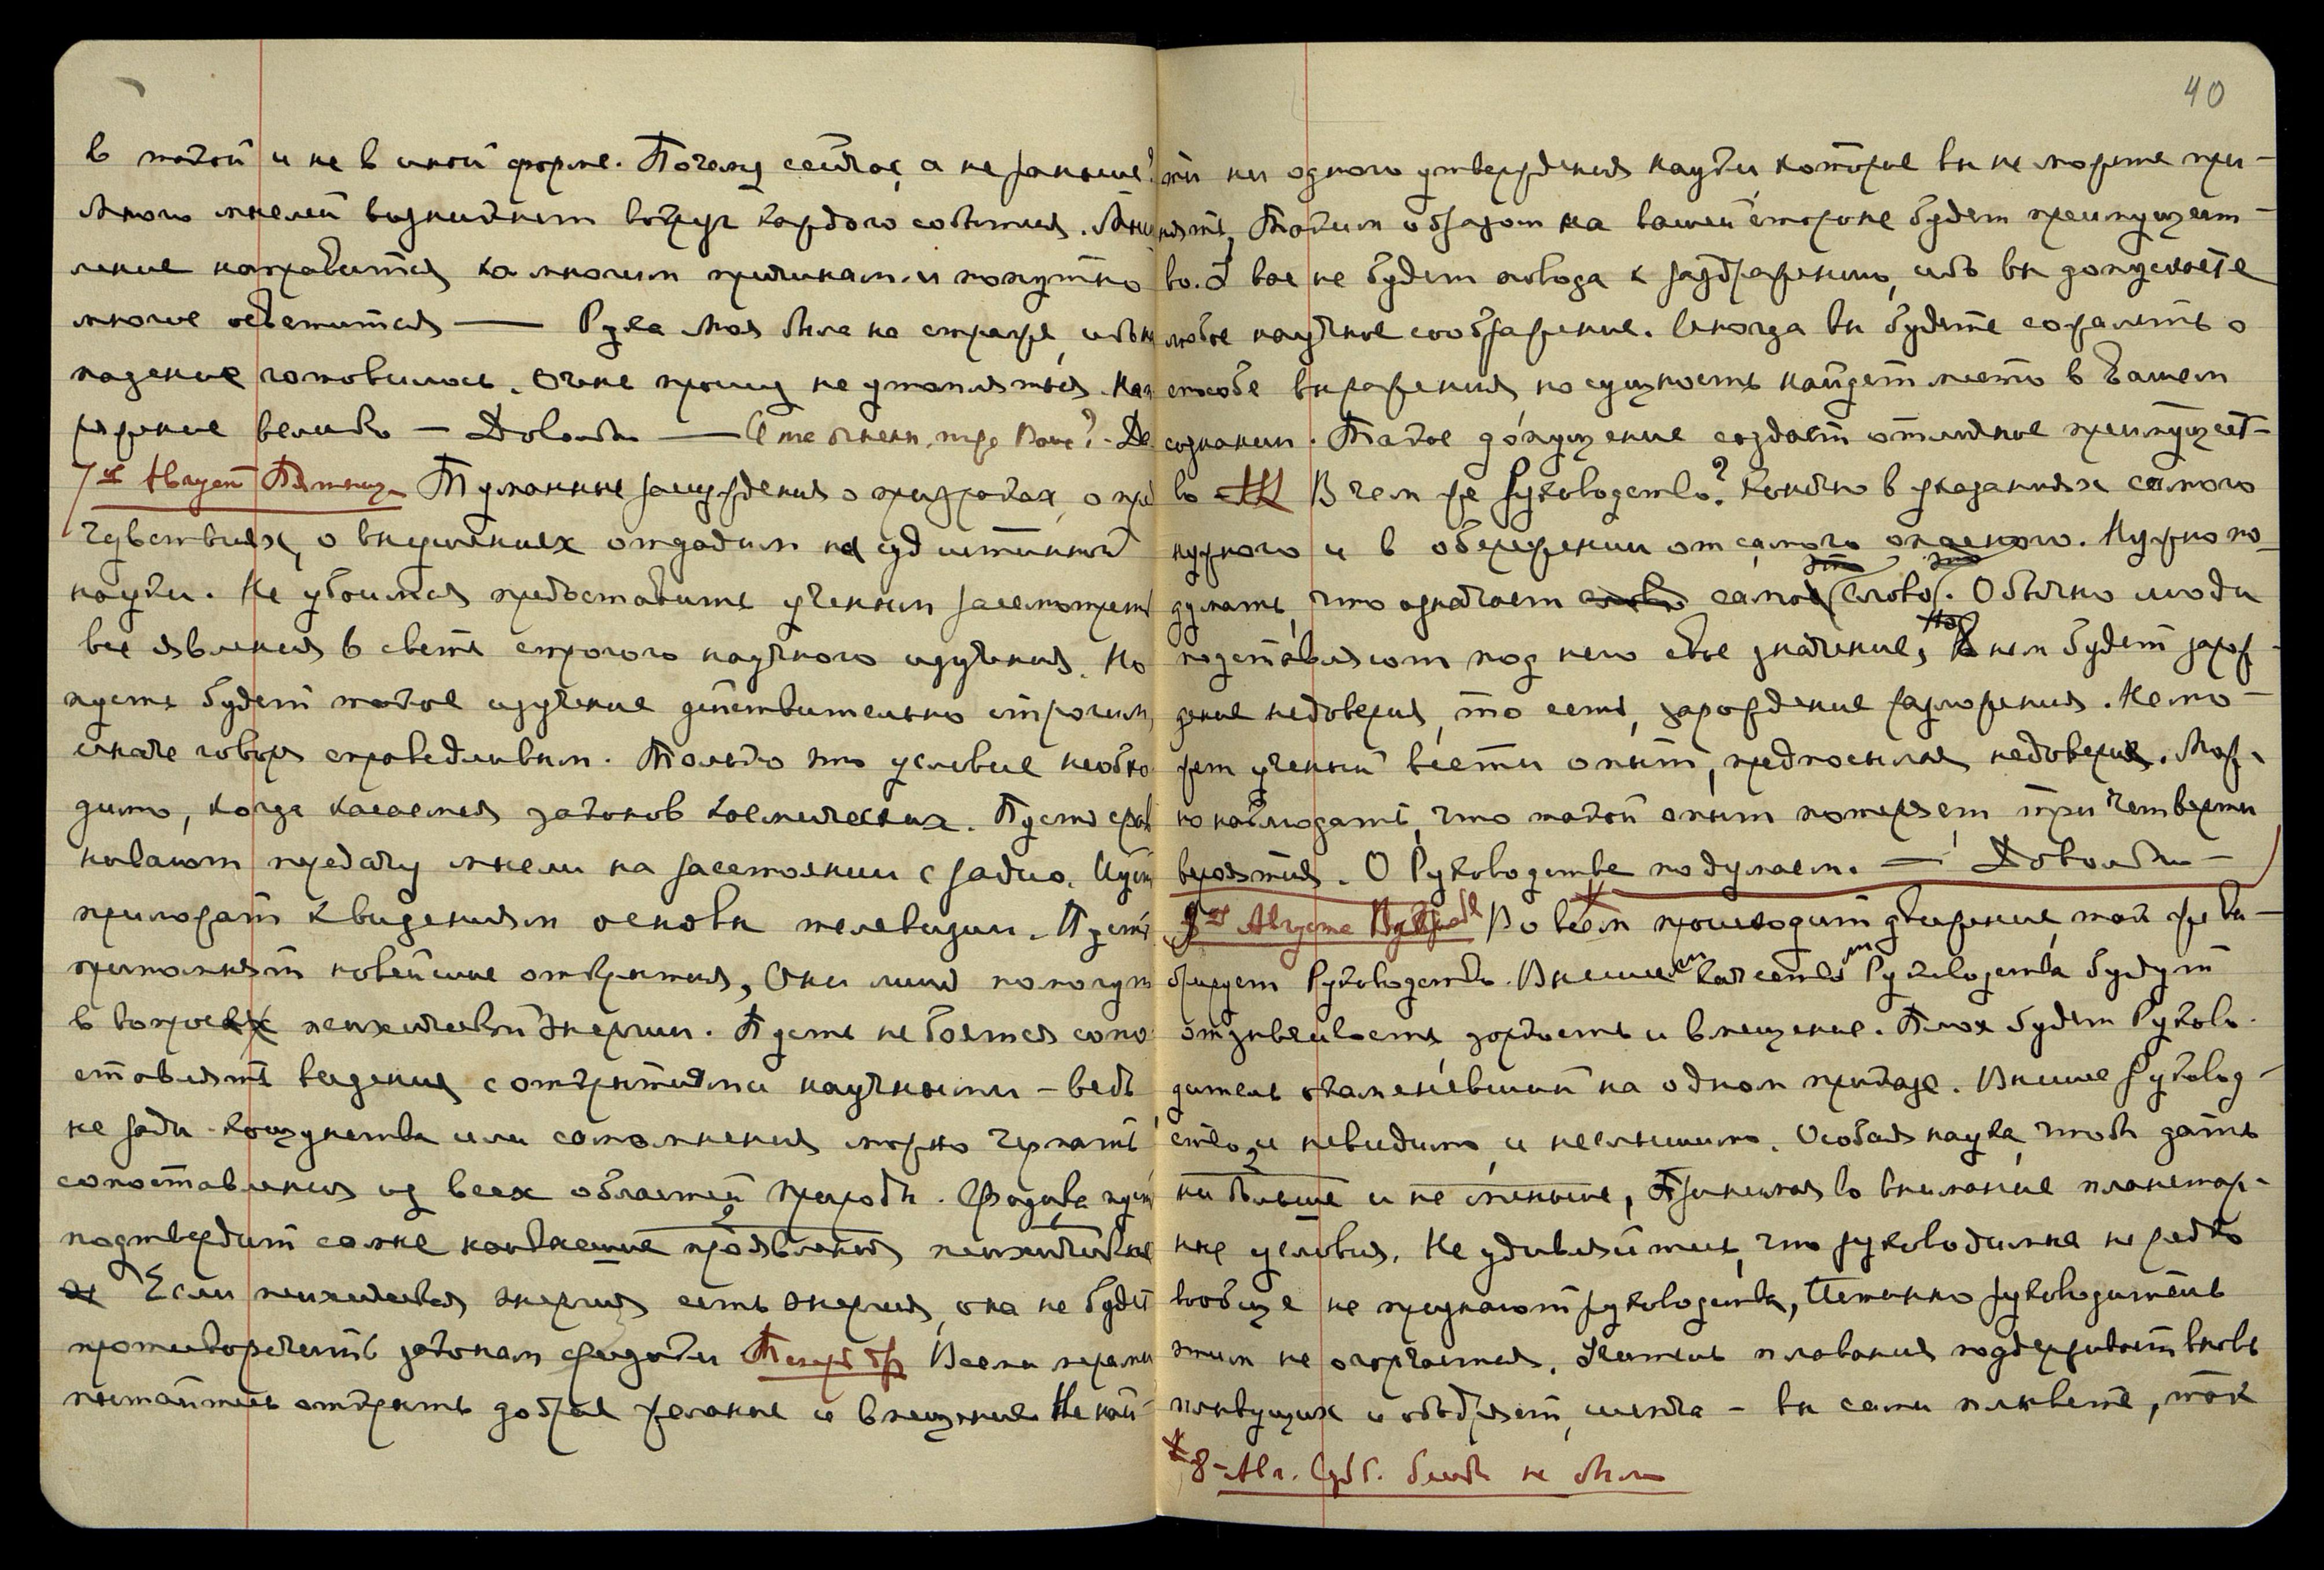 в такой и не в иной форме. Почему сейчас, а не раньше?
Много мыслей возникнет вокруг каждого события. Мыш
ление направится ко многим причинам и попутно
многое осветится — Рука Моя была на страже, ибо на
падение готовилось. Очень прошу не утомляться. Нап
ряжение велико — Довольно —
7ое Август Пятница Туманные рассуждения о призраках, о пред
чувствиях, о внушениях отдадим на суд истинной
науки. Не убоимся предоставить ученым рассмотреть
все явления в свете строгого научного изучения. Но
пусть будет такое изучение действительно строгим,
иначе говоря справедливым. Только это условие необхо
димо, когда касаемся законов космических. Пусть срав
нивают передачу мысли на расстоянии с радио. Пусть
приложат к видениям основы телевизии. Пусть
припомнят новейшие открытия, Они лишь помогут
в вопросах психической энергии. Пусть не боятся сопо
ставлять видения с открытиями научными – ведь
не ради кощунства или сомнения можно черпать
сопоставления из всех областей природы. Физика пусть
подтвердит самые тонкие проявления психические
Если психическая энергия есть энергия, она не будет
противоречить законам физики Теперь Всеми мерами
пытайтесь открыть доброе желание и вмещение. Не най-
40
ти ни одного утверждения науки, которое вы не можете при-
нять, Таким образом на вашей стороне будет преимущест-
во. У вас не будет повода к раздражению, ибо вы допускаете
любое научное соображение. Иногда вы будете сожалеть о
способе выражения, но сущность найдет место в Вашем
сознании. Такое допущение создает отличное преимущест-
во В чем же Руководство? Конечно в указаниях самого
нужного и в обережении от самого опасного. Нужно по-
думать, что означает слово самое это слово. Обычно люди
подставляют под него свое значение, Но в нем будет зарож-
дение недоверия, то есть, зарождение разложения. Не мо-
жет ученый вести опыт, предпосылая недоверие. Мож-
но наблюдать, что такой опыт потеряет три четверти
вероятия. О Руководстве подумаем. — Довольно –
9ое Августа Воскресенье Во всем происходит движение, так же ви-
брирует Руководство. Высшим качеством Руководства будут
отзывчивость, зоркость и вмещение. Плох будет Руково-
дитель окаменевший на одном приказе. Высшее Руковод-
ство, и невидимо, и неслышимо. Особая наука, чтобы дать
ни больше и не меньше, Принимая во внимание планетар-
ные условия. Не удивляйтесь, что руководимые нередко
вообще не признают руководства, Истинно руководитель
этим не огорчается. Учитель плавания поддерживает вновь
плывущих и ободряет, шепча – вы сами плывете, так
* 8 – Авг. Субб. бесед не было